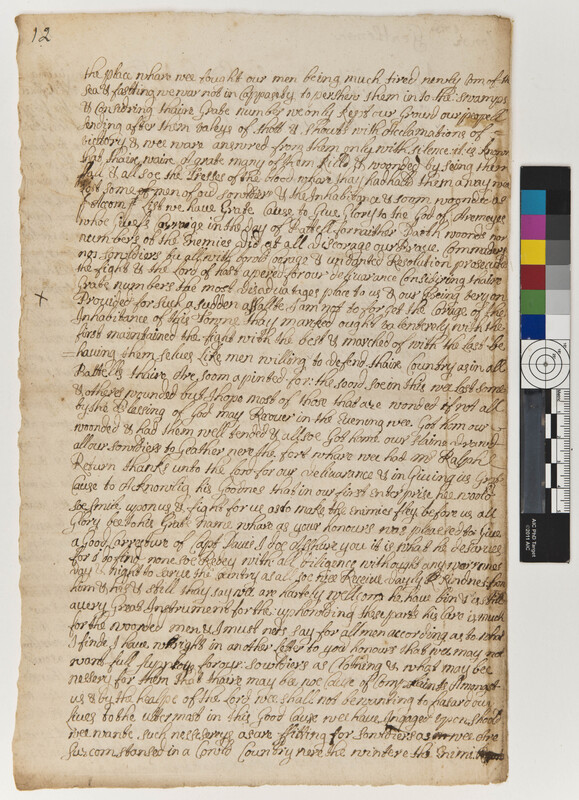 12
the place whare wee fought our men being much tired newly Com of the
sea & fasting we war not in Cappasaty to pershew them into the swamps
& Considring thaire Grate number we only kept our Ground our peopell
sending after them valeys of shott & shouts with acclamations of =
victory & wee ware answred from them only with silence it is known
that thaire waire A grate many of them kild & woonded by seing them
fall & allsoe the Tresses of the blood whare thay had hald them away we
lost some men of our souldiers & the Inhabitance & soom wagnded as
followeth Yet we have Grate Cause to Give Glory to the God of
whoe gives Corraige in the day of Battell for naither Death woonds nor
numbers of the Enemies did at all discorage our brave Commanders
nor souldiers but all with Grate Corage & undanted Resolution prosecuted
the fight & the Lord of hast apered for our deliverance Considring thaire
Grate numbers the most disadvantages place to us & our being
Provided for such a sudden assalte I am not to forgot the Corage of the
Inhabitance of this Towne thay marched ought with the
first maintained the fight with the best & marched of with the last be
= having them selves Like men willing to defend thaire Country as in all
Battells thaire Are soom apointed for the soord soe in this wee last some
& others wounded but I hope most of those that are wonded if not all
by the Blessing of God may Recover in the Evening wee Got hom our
woonded & had them well tended & allsoe Got homt our slaine & drawed
all our souldiers to Geather nere the fort whare we had mr Ralph
Return thanks unto the Lord for our deliverance & in Giving us Grate
Cause to Acknowlig his Goodnes that in our first enterprise hee woold
soe smile upon us & fight for us as to make the enimies fley before us all
Glory bee to his Grate name whare as your honours was pleased to Give
a Good Carrecture of Capt Davis I doe asshure you it is what he deserves
for I do find none soe Redey with all diligence without any
day & night to sarve the Cuntry as all soe wee Receive dayly kindness from
hom & his & still thay say wee are hartely wellcom he have bin & is still
a very Great Instrument for the uphoulding these parts his Care is much
for the woonded men & I must nots say for all men according as to what
I finde I have wright in another Letter to you honours that wee may not
want full supplys for our souldiers as Clothing & what may bee
nessery for them that thaire may be noe Cause of Complaints Amongst
us & by the healpe of the Lord wee shall not be wanting to hasard our
lives to the uttermost in this Good Cause wee have Ingaged upon should
wee wante such nessesarys as are fitting for souldiers as wee are
surcomstansed in a Could Country nere the winter & the Enimi